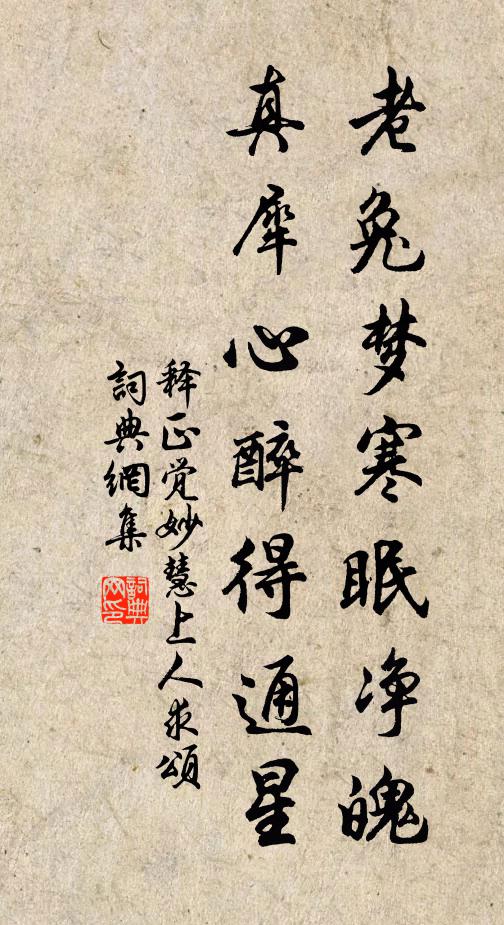 老兔梦寒眠净魄
真犀心醉得通星
释正觉妙慧上人求頌
詞典網集
詞典